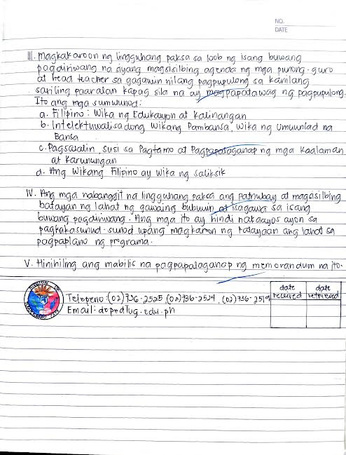 NO.
DATE
III. Magkakaroon ng lingguhang paksa sa loob ng isang buwang
pagdiriwang na ayang magsisilbing agenda ng mga punong-guro
at head teacher sa gagawin nilang pagpupulong sa kanilang
sariling paaralan kapag sila na ay magpapatawag ng pagpupulong.
Ito ang mga sumusunod:
a. Filipino: Wika ng Edukasyon at Kalinangan
b. Intelektuwalisadong Wikang Pambansa, Wika ng Umuunlad na
Bansa
c. Pagsasalin, Susi sa Pagtamo at Pagpapalaganap ng mga Kaalaman
at Karunungan
d. Ang Wikang Filipino ay Wika ng Saliksik
IV. Ang mga nabanggit na lingguhang paksa ang patnubay at magsisilbing
batayan ng lahat ng gawaing bubuuin at isagawa sa isang
buwang pagdiriwang. Ang mga ito ay hindi nakaayos ayon sa
pagkakasunod-sunod upang magkaron ng kalayaan ang lahat sa
pagpaplano ng programa.
V. Hinihiling ang mabilis na pagpapalaganap ng memorandum na ito.
Telepono: (02) 736-2525 (02) 736-2524 , (02) 736-2519
Email:
date received
date retrieved